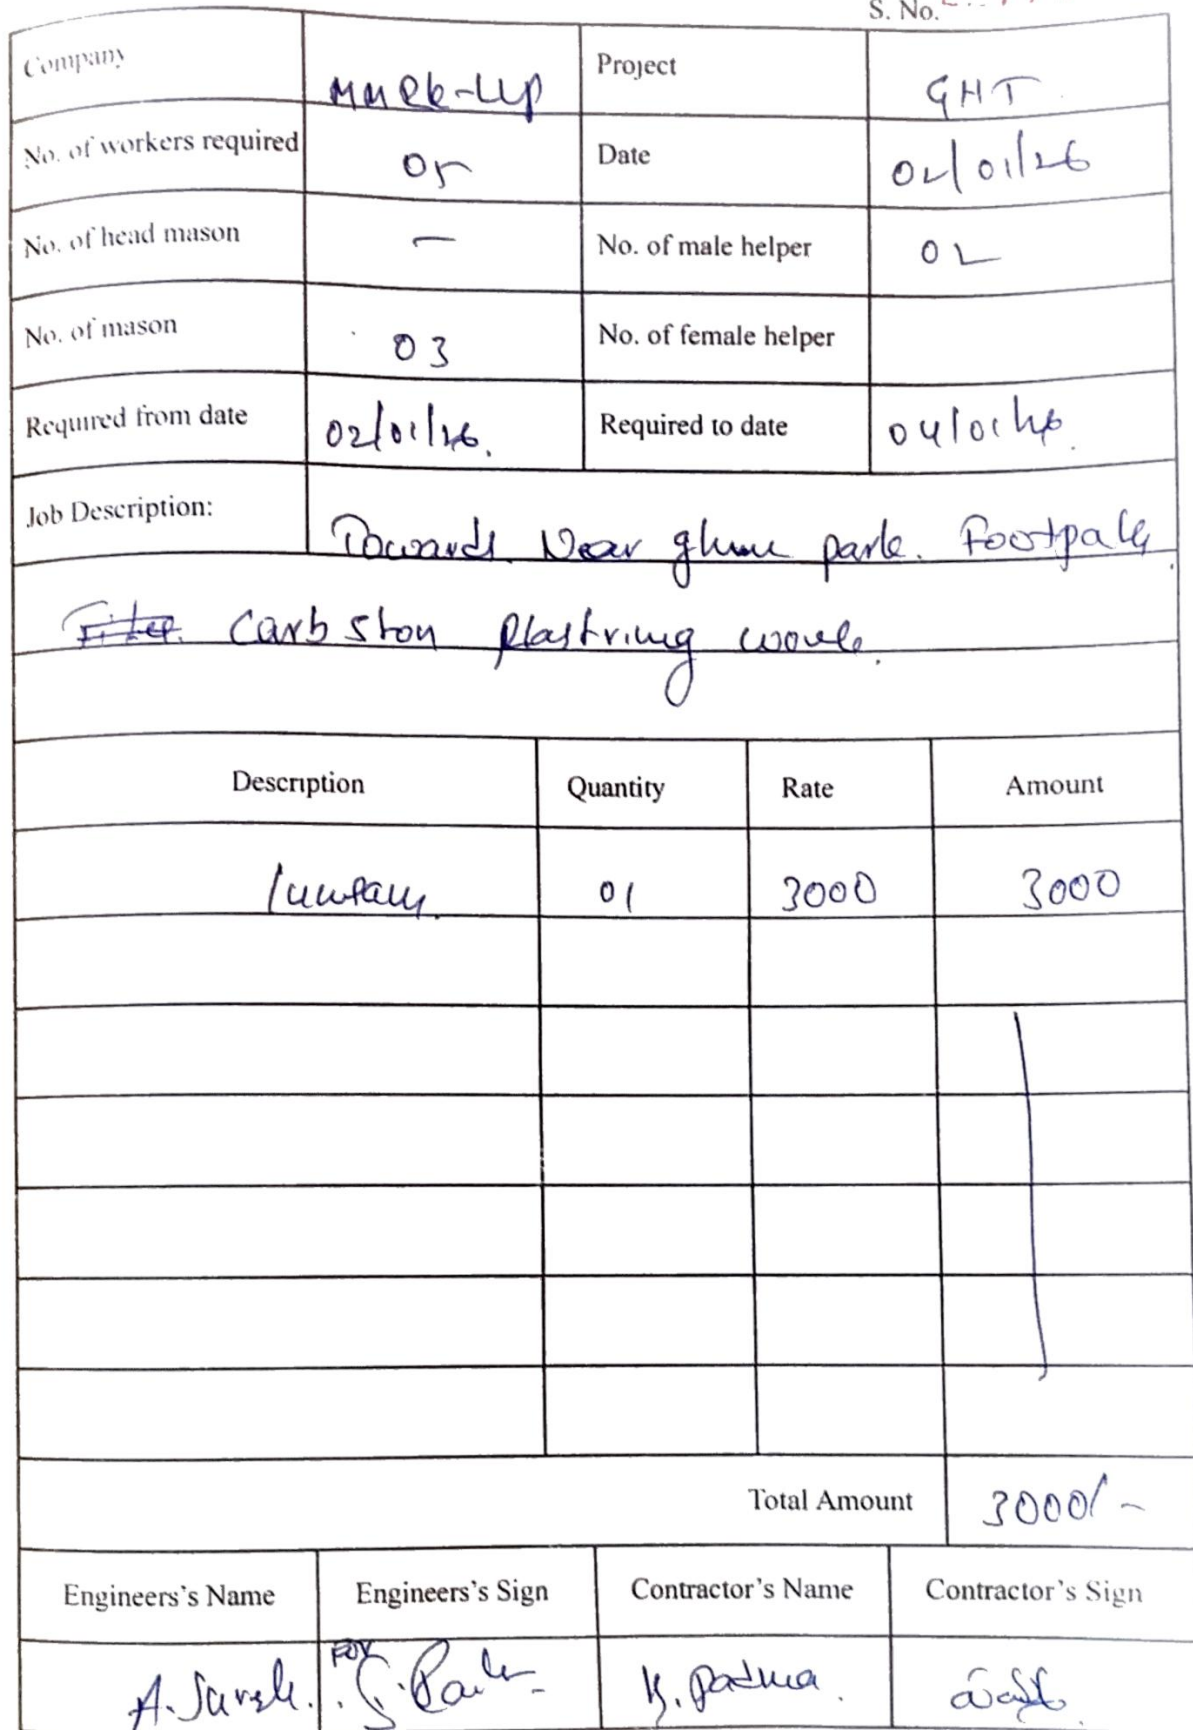 S. No.
Company MMRK-UP Project GHT
No. of workers required 05 Date 02/01/26
No. of head mason — No. of male helper 02
No. of mason 03 No. of female helper
Required from date 02/01/26. Required to date 04/01/26.
Job Description: Towards Near park. Footpath
Carb ston Plastring work.
Description Quantity Rate Amount
01 3000 3000
Total Amount 3000/-
Engineers's Name Engineers's Sign Contractor's Name Contractor's Sign
For
K. Padma.